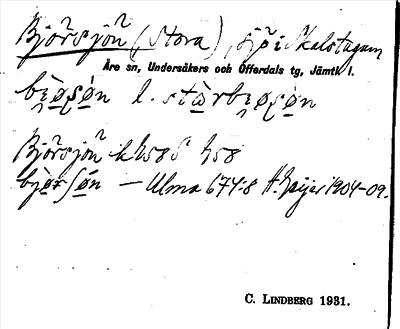 Björsjön (Stora), sjö i Kalstugam
Åre sn, Undersåkers och Offerdals tg, Jämtl l.
bi̯ø̀ʂøn l. stàrbi̯øʂøn
Björsjön kh58S h58
bjørʃøn — Ulma 674:8 H. Geijer 1904-09.
C. LINDBERG 1931.